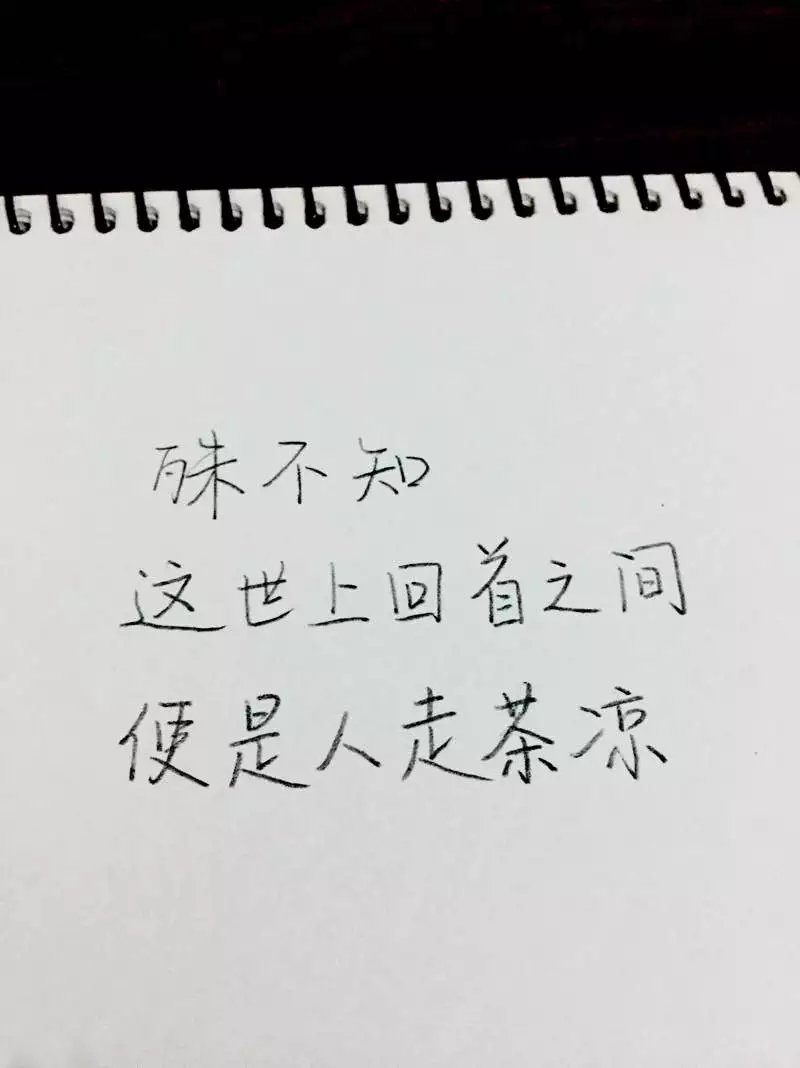 殊不知
这世上回首之间
便是人走茶凉